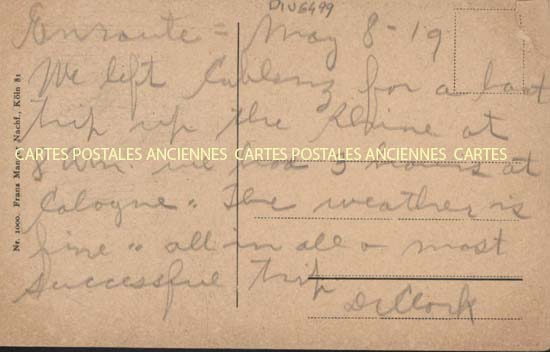 DIV6499
Enroute = May 8-19
We left Coblenz for a boat
trip up the Rhine at
8 am we had 5 hours at
Cologne. The weather is
fine .. all in all a most
successful trip
DeClark
Nr. 1000. Franz Nachf., Köln 81
CARTES POSTALES ANCIENNES CARTES POSTALES ANCIENNES CARTES